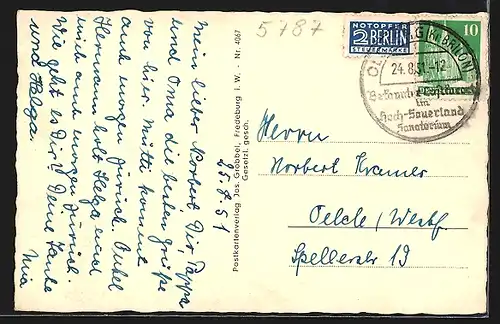 5787
Mein lieber Norbert Dir, Pappa
und Oma die besten Grüße
von hier. Mutti kommt
auch morgen zurück. Onkel
Hermann holt Helga und
mich auch morgen zurück.
Wie geht es Dir? Deine Tante
Mia
und Helga.
25.8.51
Postkartenverlag Jos. Grobbel, Fredeburg i. W. - Nr. 4067
Gesetzl. gesch.
NOTOPFER
2 BERLIN
STEUERMARKE
10
KR. BRILON
24.8.51-12
im
Hoch-Sauerland
Sanatorium
Herrn
Norbert Kramer
Oelde, Westf.
Spellerstr. 19